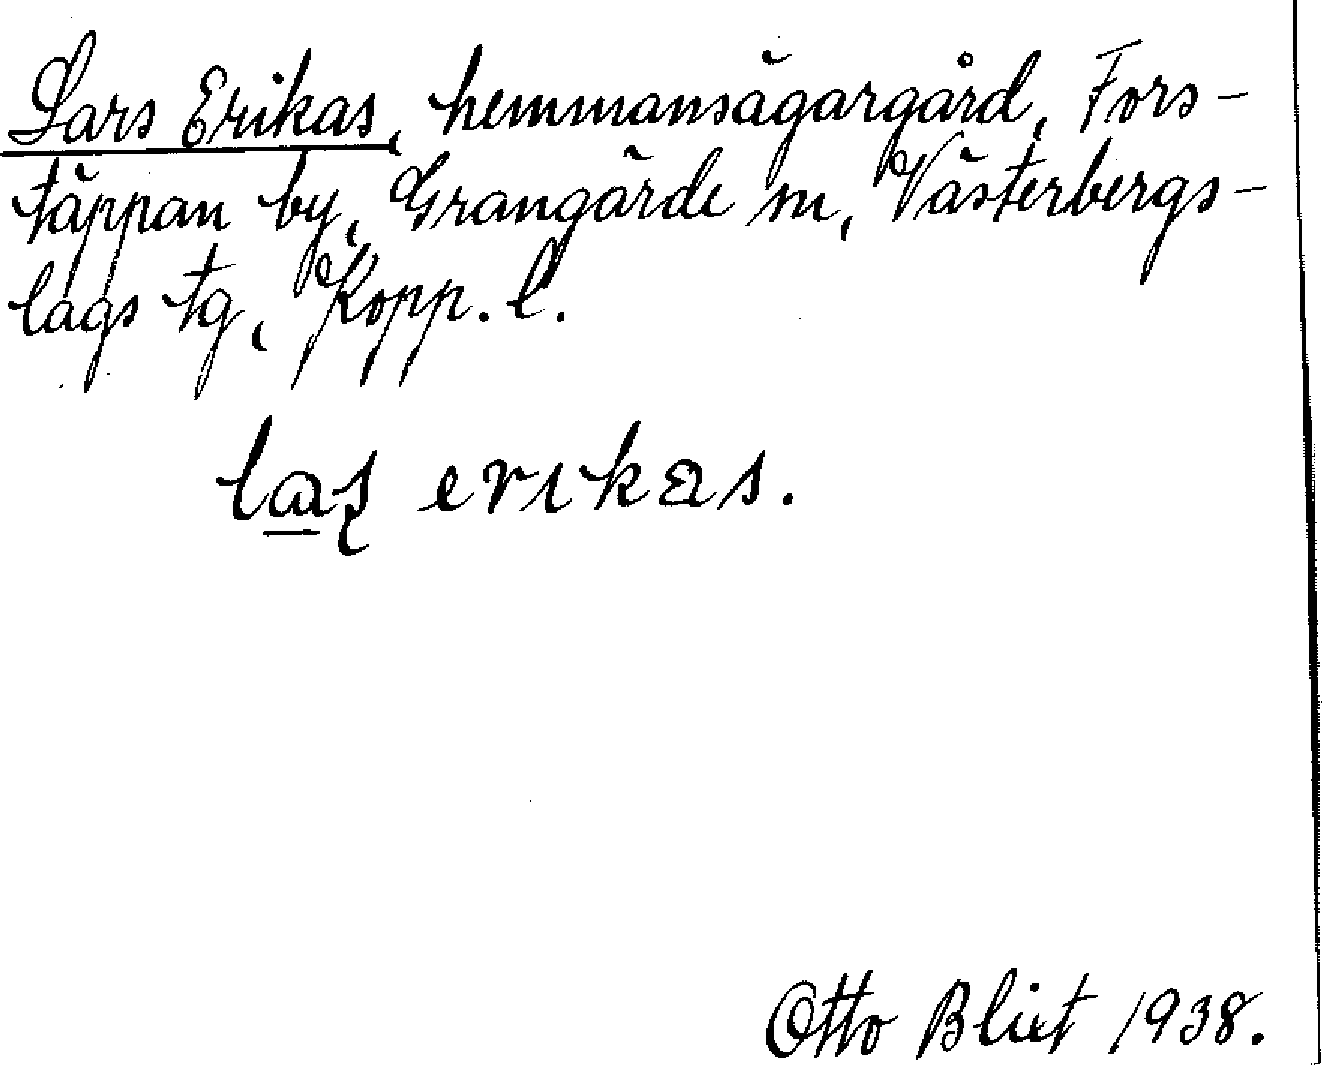 Lars Erikas, hemmansägargård, Fors-
täppan by, Grangärde sn, Västerbergs-
lags tg, Kopp. l.
las̨ erıkas.
Otto Blixt 1938.